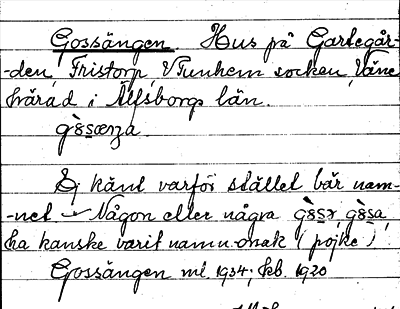 Gossängen. Hus på Gartegår-
-den, Fristorp, V Tunhem socken, Väne
härad i Älfsborgs län.
Ej känt varför stället bär nam-
-net. Någon eller några
ha kanske varit namn. orsak (pojke)
Gossängen ml. 1934, kb. 1920